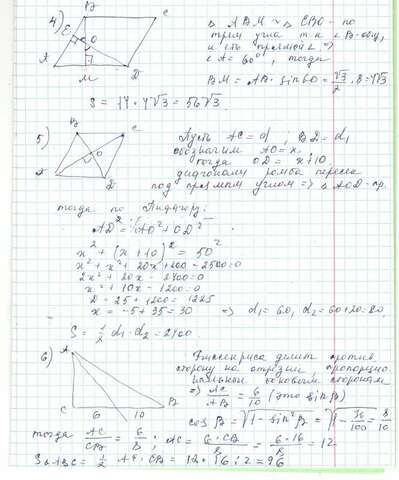 4)
B
C
E
O
A
M
D
Δ ABM ∾ Δ EBO - по
трем углам т.к ∠ B - общ,
и есть прямой ∠ ⇒
∠A = 60°, тогда
BM = AB · sin 60 = √3/2 · 8 = 4√3
S = 14 · 4√3 = 56√3.
5)
B
C
A
O
D
Пусть AC = d, BD = d₁
обозначим AO = x.
тогда OD = x+10
диагонали ромба пересе
под прямым углом ⇒ Δ AOD - пр.
тогда по Пифагору:
AD² = AO² + OD²
x² + (x+10)² = 50²
x² + x² + 20x + 100 - 2500 = 0
2x² + 20x - 2400 = 0
x² + 10x - 1200 = 0
D = 25 + 1200 = 1225
x = -5 + 35 = 30 ⇒ d₁ = 60, d₂ = 60+20=80,
S = 1/2 d₁ · d₂ = 2400
6)
A
C
6
10
B
Биссектриса делит против.
сторону на отрезки, пропорцио
нальной боковым сторонам
⇒ AC/AB = 6/10 (это sin B)
cos B = √1 - sin² B = √1 - 36/100 = 8/10
тогда AC/CB = 6/8; AC = 6 · CB/8 = 6 · 16/8 = 12
S ΔABC = 1/2 AC · CB = 12 · 16 : 2 = 96